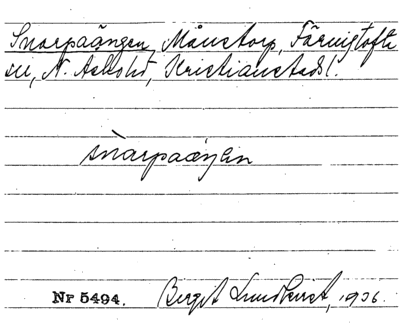 Snarpaängen, Månstorp, Färingtofta
sn, N. Åsbohd, Kristianstads l.
snarpaäŋen
Nr 5494. Birgit Lundkvist, 1936.